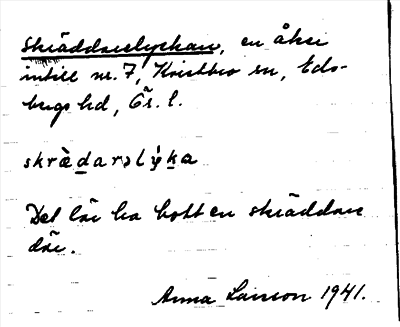 Skräddarelyckan, en åker
intill nr. 7, Kristberg sn, Bobergs
hd, Ög. l.
skrædarəlýka
Det lär ha bott en skräddare
där.
Anna Larsson 1941.